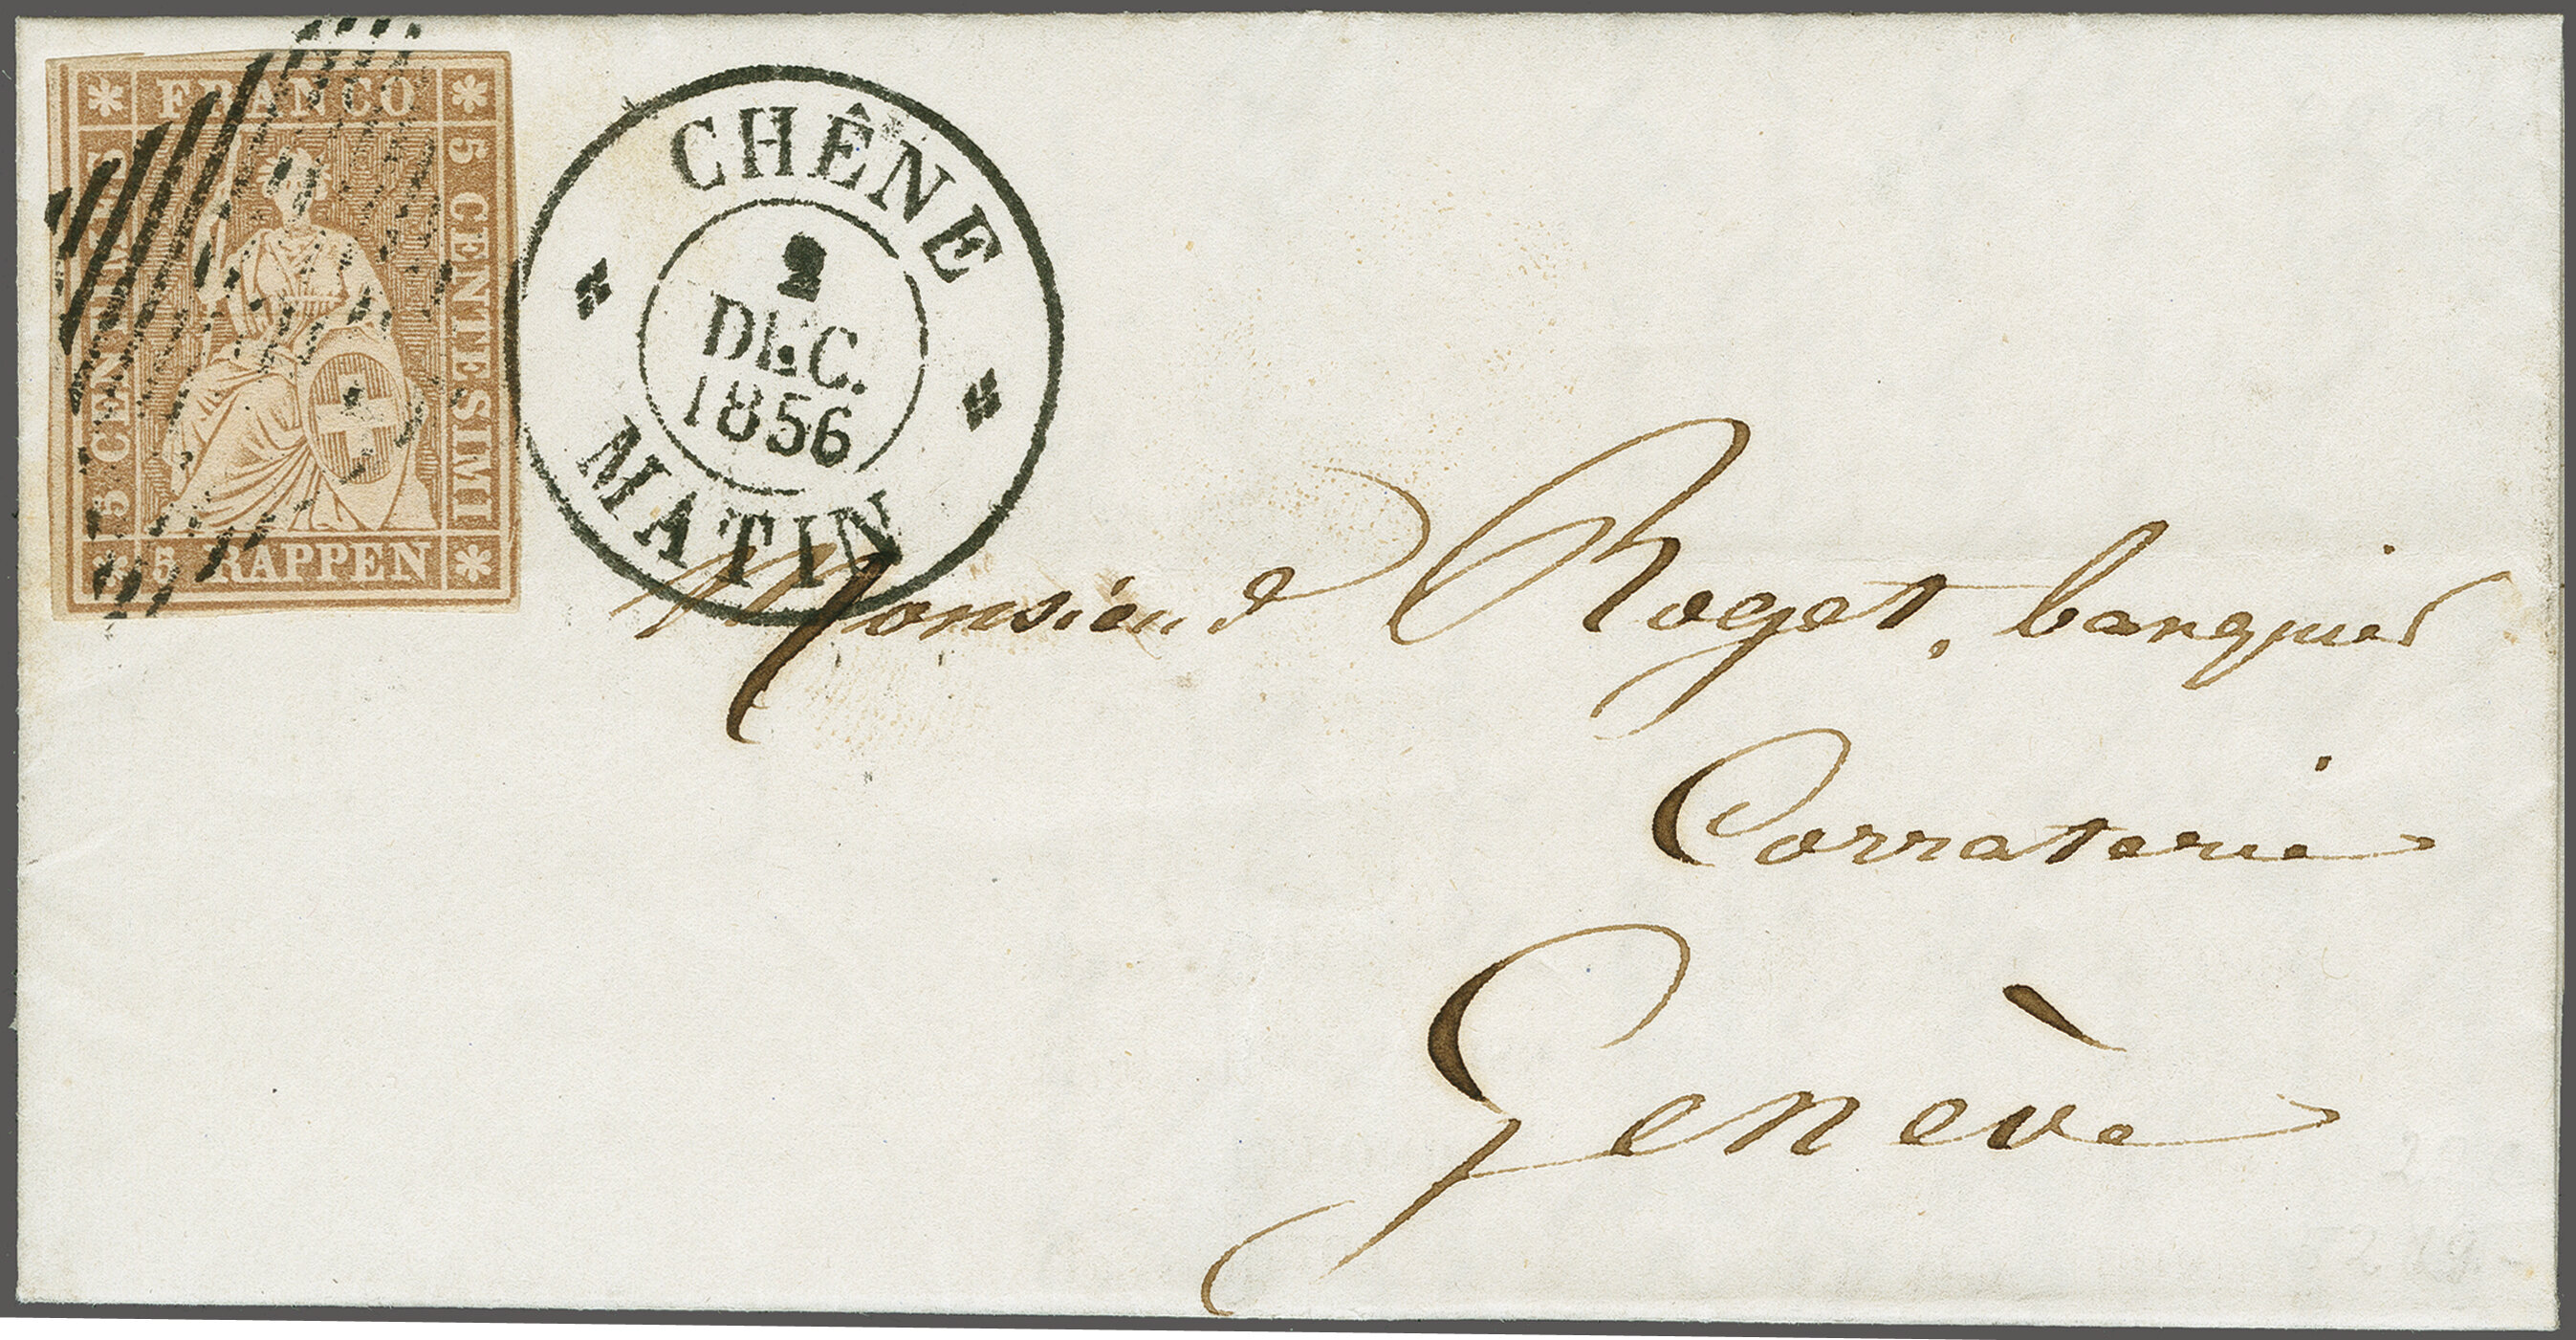 FRANCO
5 CENTIMES
5 CENTESIMI
5 RAPPEN
CHÊNE
2
DEC.
1856
MATIN
Monsieur Roget, banquier
Corraterie
Genève